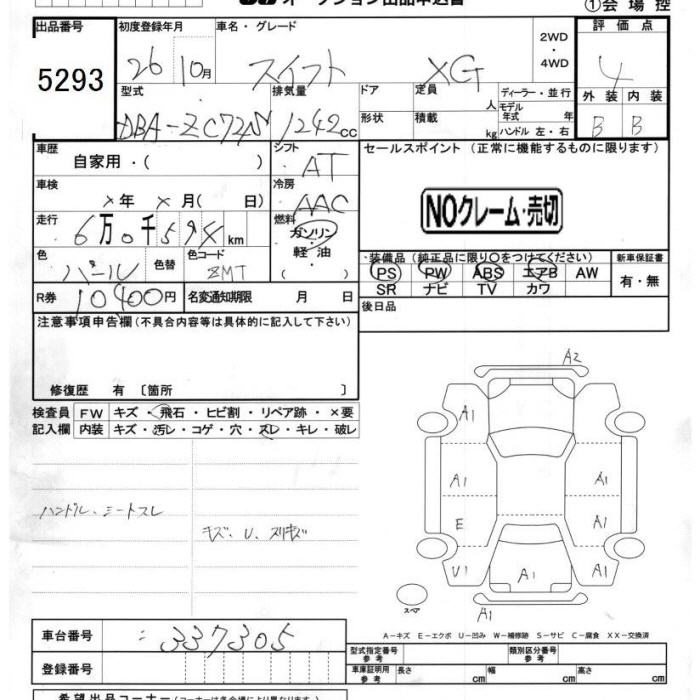 オークション出品申込書
①会場控
出品番号 初度登録年月 車名・グレード 2WD・4WD 評価点
5293 26 10月 スイフト XG 4
型式 排気量 ドア 定員 人 ディーラー・並行 外装 内装
DBA-ZC72S 1242cc 形状 積載 kg モデル年式 年 B B
ハンドル 左・右
車歴 自家用・( ) シフト AT セールスポイント (正常に機能するものに限ります)
車検 ×年 ×月( 日) 冷房 AAC
NOクレーム・売切
走行 6万0千594km 燃料 ガソリン・軽油・( )
色 パール 色替 色コード ZMT
装備品 (純正品に限り○をつけてください) 新車保証書
PS PW ABS エアB AW 有・無
SR ナビ TV カワ
R券 10400円 名変通知期限 月 日 後日品
注意事項申告欄 (不具合内容等は具体的に記入して下さい)
修復歴 有 〔箇所 〕
検査員 FW キズ・飛石・ヒビ割・リペア跡・×要
記入欄 内装 キズ・汚レ・コゲ・穴・スレ・キレ・破レ
ハンドル、シートスレ
キズ、U、スリキズ
A2
A1
A1 A1
E A1
U1 A1 A1
スペア A1
A-キズ E-エクボ U-凹み W-補修跡 S-サビ C-腐食 XX-交換済
車台番号 337305
登録番号
型式指定番号 参考 類別区分番号 参考
車庫証明用 参考 長さ cm 幅 cm 高さ cm
希望出品コーナー (コーナーは各会場により異なります)